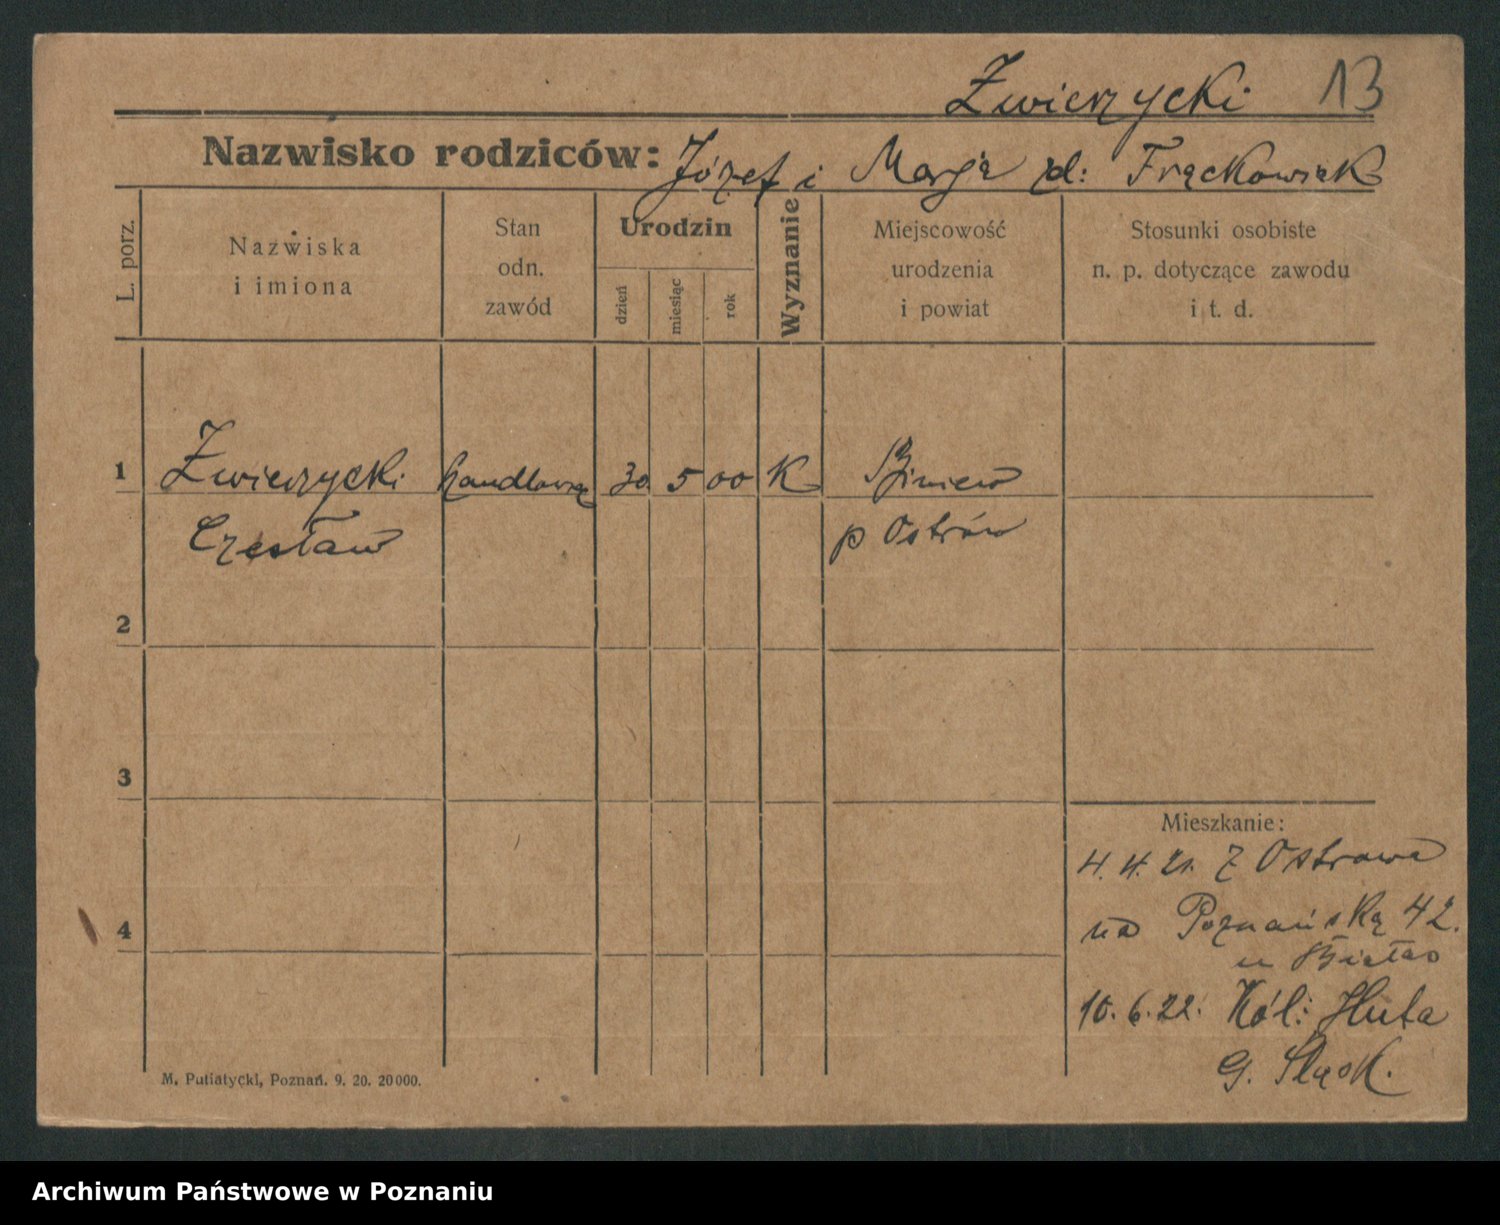 Zwierzycki 13
Nazwisko rodziców: Józef i Marja zd: Frąckowiak
L. porz.
Nazwiska
i imiona
Stan
odn.
zawód
Urodzin
dzień
miesiąc
rok
Wyznanie
Miejscowość
urodzenia
i powiat
Stosunki osobiste
n. p. dotyczące zawodu
i t. d.
1 Zwierzycki handlowiec 30 5 00 K Biniew
Czesław p Ostrów
2
3
4
Mieszkanie:
4. 4. 21. z Ostrowa
na Poznańską 42.
u
10. 6. 22. Król: Huta
G. Śląsk.
M. Putiatycki, Poznań. 9. 20. 20000.
Archiwum Państwowe w Poznaniu